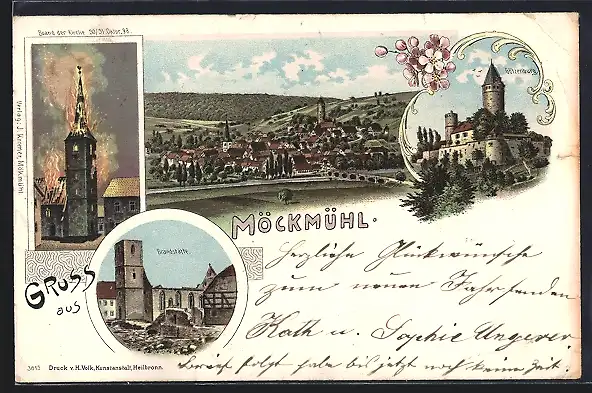 Brand der Kirche 30/31 Oktbr. 98.
Verlag: J. Kimmerle, Möckmühl
Götzenburg
MÖCKMÜHL.
Brandstätte
GRUSS
aus
Herzliche Glückwünsche
zum neuen Jahr senden
Kath u. Sophie Ungerer
Brief folgt habe bis jetzt noch keine Zeit.
3613 Druck v. H. Volk, Kunstanstalt, Heilbronn.